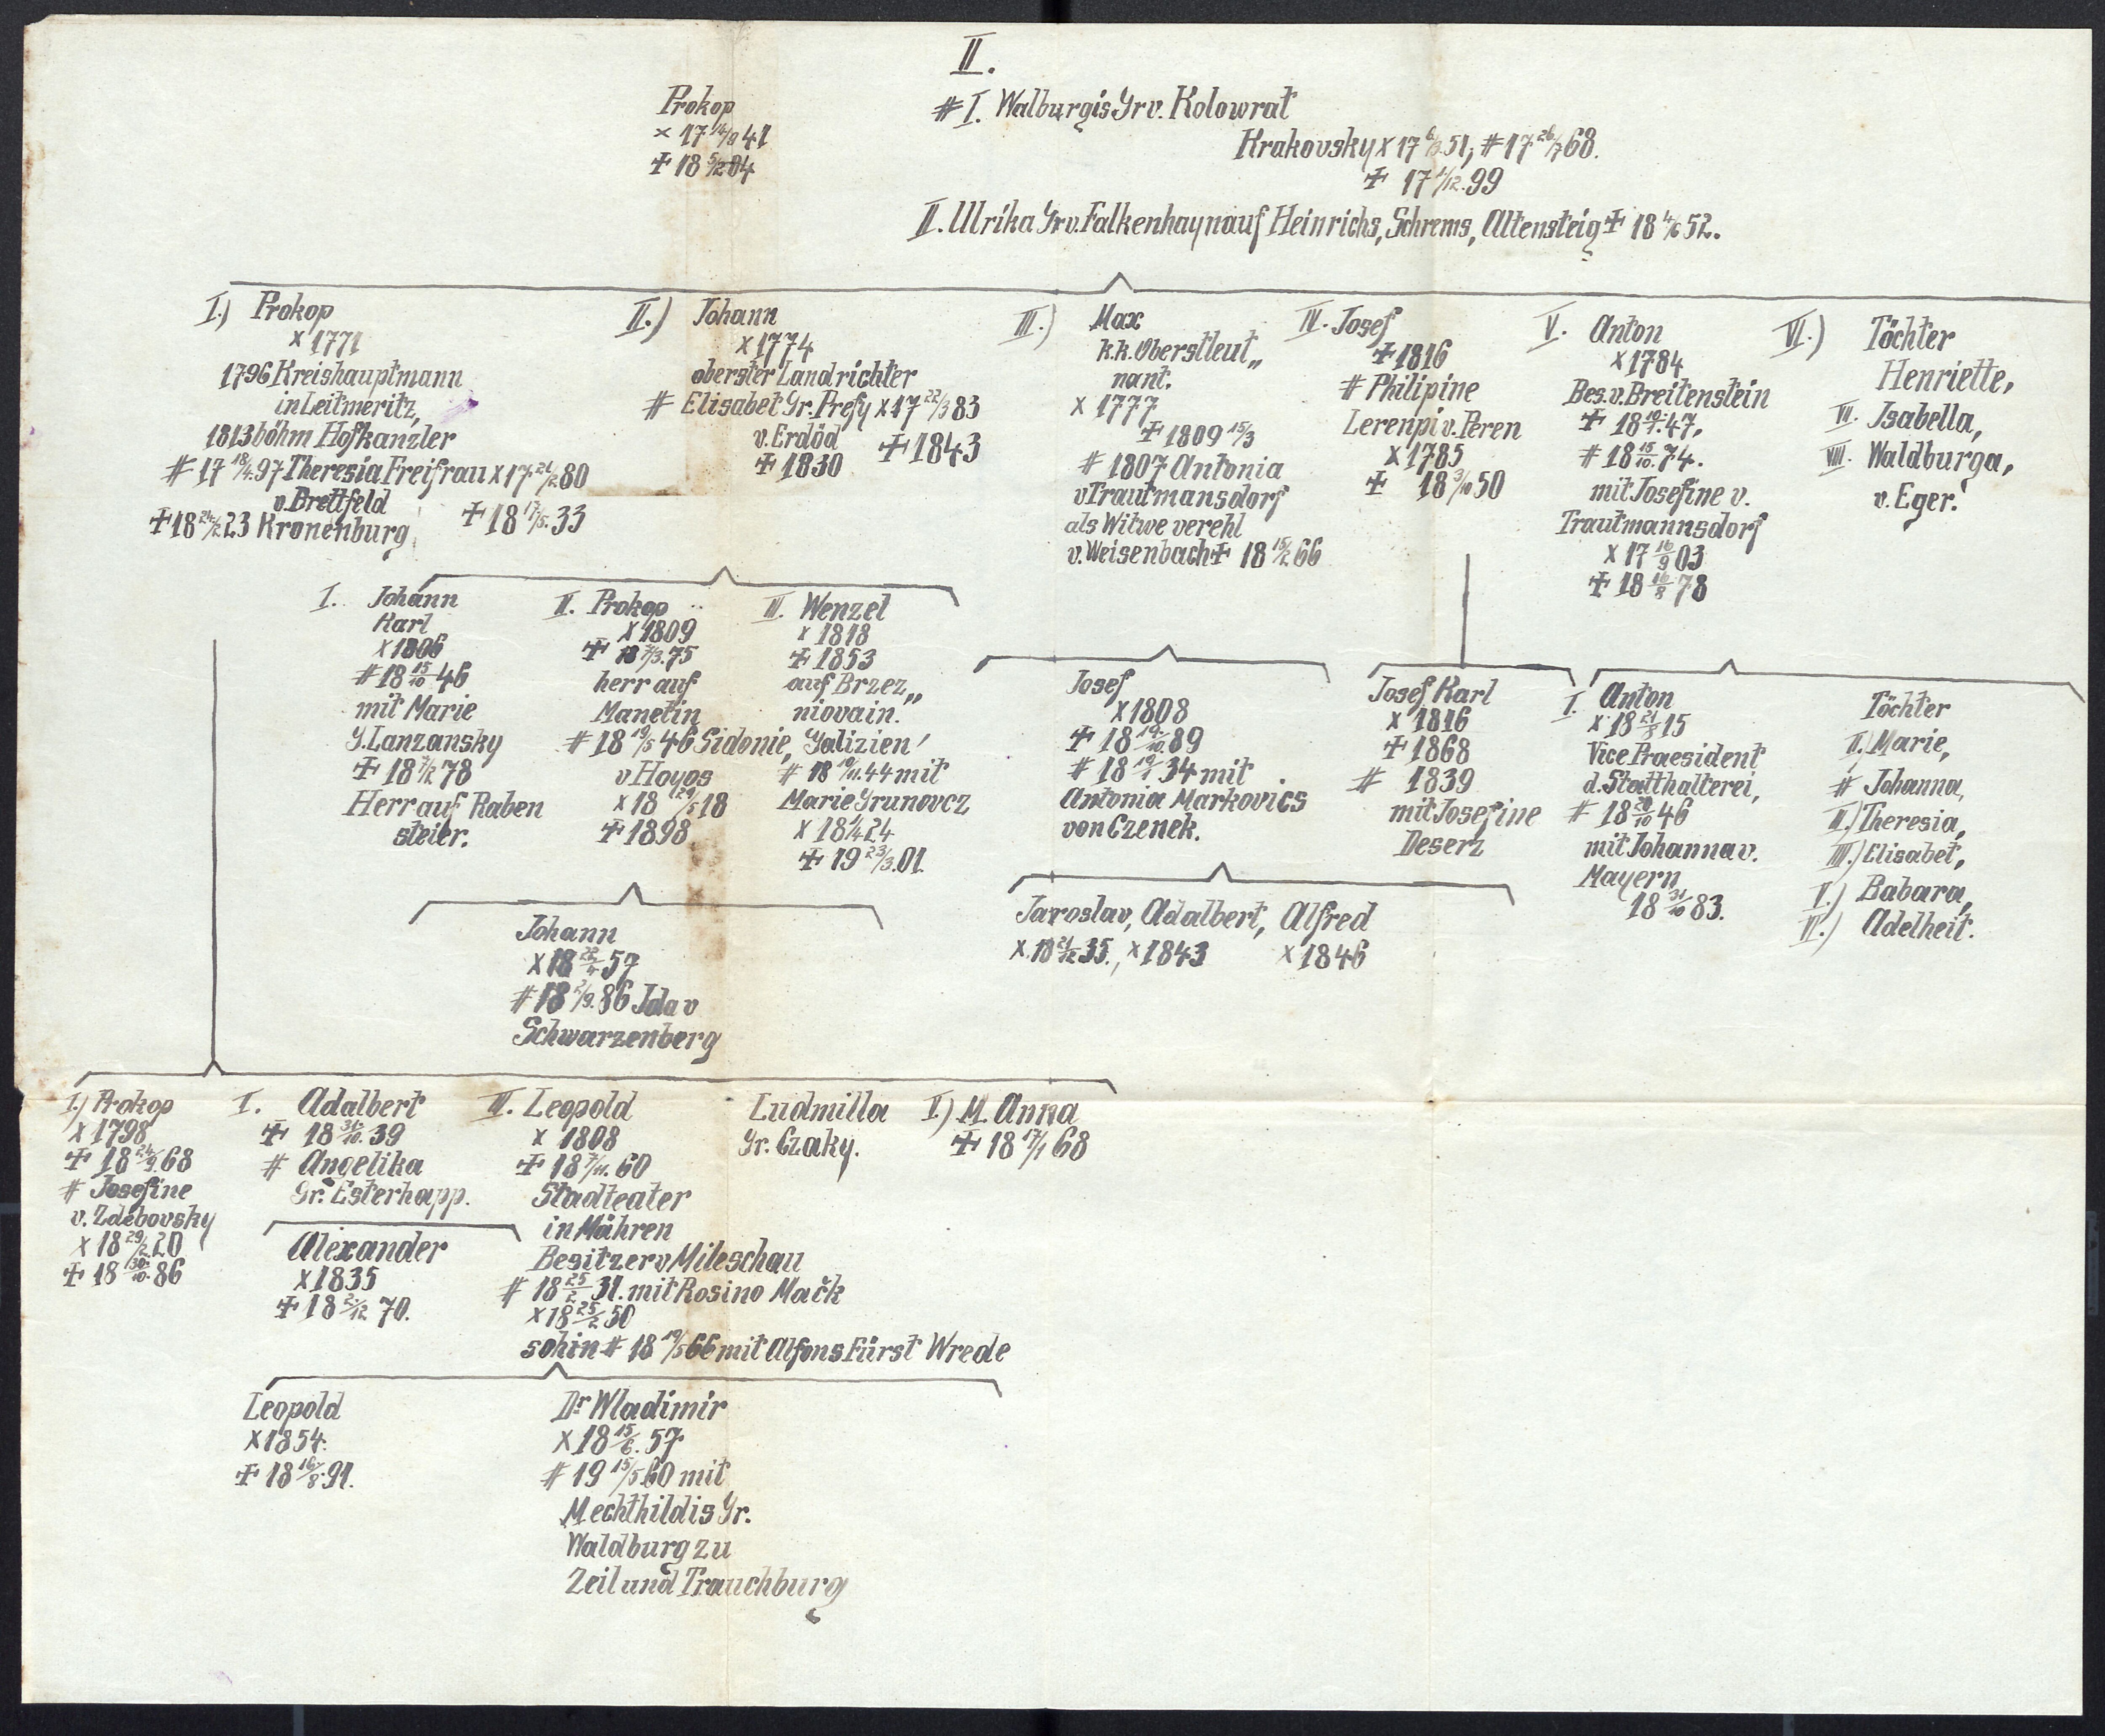 II.
Prokop
× 17 14/8 41
✝ 18 5/2 04
# I. Walburgis Gr v. Kolowrat
Krakovsky x 17 6/3. 51, # 17 26/7 68.
✝ 17 1/12. 99
II. Ulrika Gr v. Falkenhayn auf Heinrichs, Schrems, Altensteig ✝ 18 4/6 52.
I.) Prokop
x 1771
1796 Kreishauptmann
in Leitmeritz,
1813 böhm Hofkanzler
# 17 18/4. 97 Theresia Freifrau x 17 21/2 80
v. Brettfeld
✝ 18 24/2 23 Kronenburg ✝ 18 17/5. 33
II.) Johann
x 1774
oberster Landrichter
# Elisabet Gr. Prefy x 17 22/3 83
v. Erdöd ✝ 1843
✝ 1830
III.) Max
k.k. Oberstleut„
nant.
x 1777
✝ 1809 15/3
# 1807 Antonia
v Trautmansdorf
als Witwe verehl
v. Weisenbach ✝ 18 15/2 66
IV. Josef
✝ 1816
# Philipine
Lerenpi v. Peren
x 1785
✝ 18 3/10 50
V. Anton
x 1784
Bes. v. Breitenstein
✝ 18 47,
# 18 15/10. 74.
mit Josefine v.
Trautmannsdorf
x 17 16/9 03
✝ 18 16/8 78
VI.) Töchter
Henriette,
VII. Isabella,
VIII. Waldburga,
v. Eger.
I. Johann
Karl
x 1806
# 18 15/10 46
mit Marie
G. Lanzansky
✝ 18 7/12 78
Herr auf Raben
steier.
II. Prokop
x 1809
✝ 18 7/3. 75
herr auf
Manetin
# 18 19/5 46 Sidonie,
v Hoyos
x 18 29/5 18
✝ 1898
III. Wenzel
x 1818
✝ 1853
auf Brzez„
niovain.
Galizien
# 18 19/11. 44 mit
Marie Grunovcz
x 18 1/4 24
✝ 19 23/3. 01.
Josef
x 1808
✝ 18 19/10. 89
# 18 34 mit
Antonia Markovics
von Czenek.
Josef Karl
x 1816
✝ 1868
# 1839
mit Josefine
Deserz
I. Anton
x 18 21/3 15
Vice Praesident
d. Statthalterei,
# 18 20/10 46
mit Johanna v.
Mayern
18 31/10 83.
Töchter
II.) Marie,
# Johanna,
II.) Theresia,
III.) Elisabet,
V.) Babara,
VI.) Adelheit.
Johann
x 18 22/4 57
# 18 2/9. 86 Ida v
Schwarzenberg
Jaroslav, Adalbert, Alfred
x. 18 21/12 35., x 1843 x 1846
I.) Prokop
x 1798
✝ 18 24/9. 68
# Josefine
v. Zdebovsky
x 18 29/2 20
✝ 18 30/10. 86
I. Adalbert
✝ 18 31/10. 39
# Angelika
Gr. Esterhapp.
Alexander
x 1835
✝ 18 2/12 70.
III. Leopold
x 1808
✝ 18 7/11. 60
Stadteater
in Mähren
Besitzer v Mileschau
# 18 25/2 31. mit Rosino Mačk
x 18 25/2 50
sohin # 18 19/5 66 mit Alfons Fürst Wrede
Ludmilla
Gr. Czaky.
V.) M. Anna
✝ 18 17/1 68
Leopold
x 1854.
✝ 18 16/8. 91.
Dr Wladimir
x 18 15/6. 57
# 19 15/5 60 mit
Mechthildis Gr.
Waldburg zu
Zeil und Trauchburg